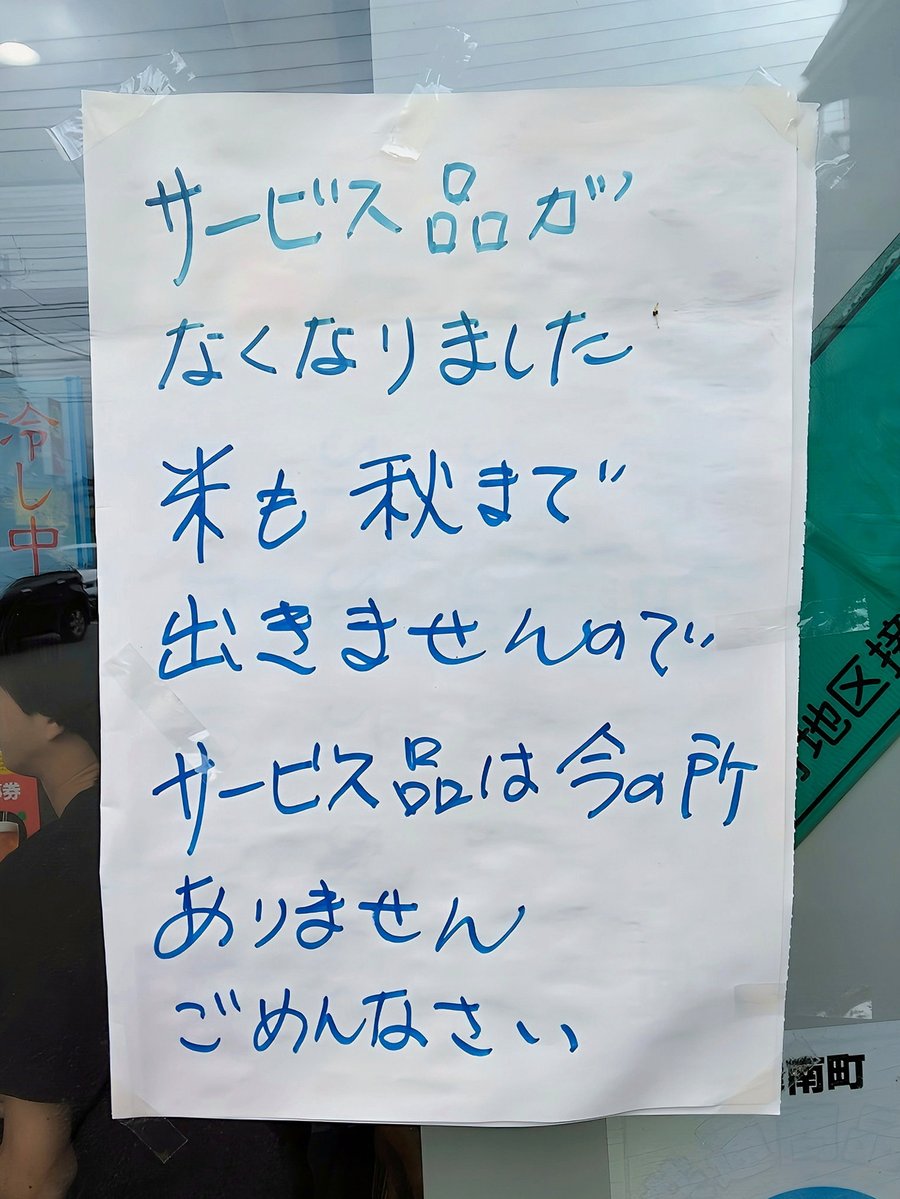 サービス品が
なくなりました
米も秋まで
出きませんので
サービス品は今の所
ありません
ごめんなさい
冷し中
券
地区接
南町